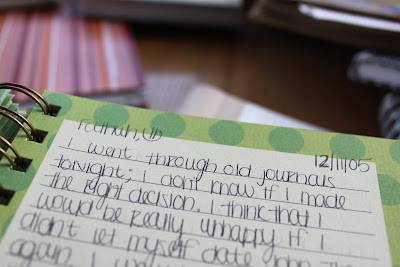 12/11/05
I went through old journals
tonight; I don't know if I made
the right decision. I think that I
would be really unhappy if I
didn't let myself date John. The
again, I